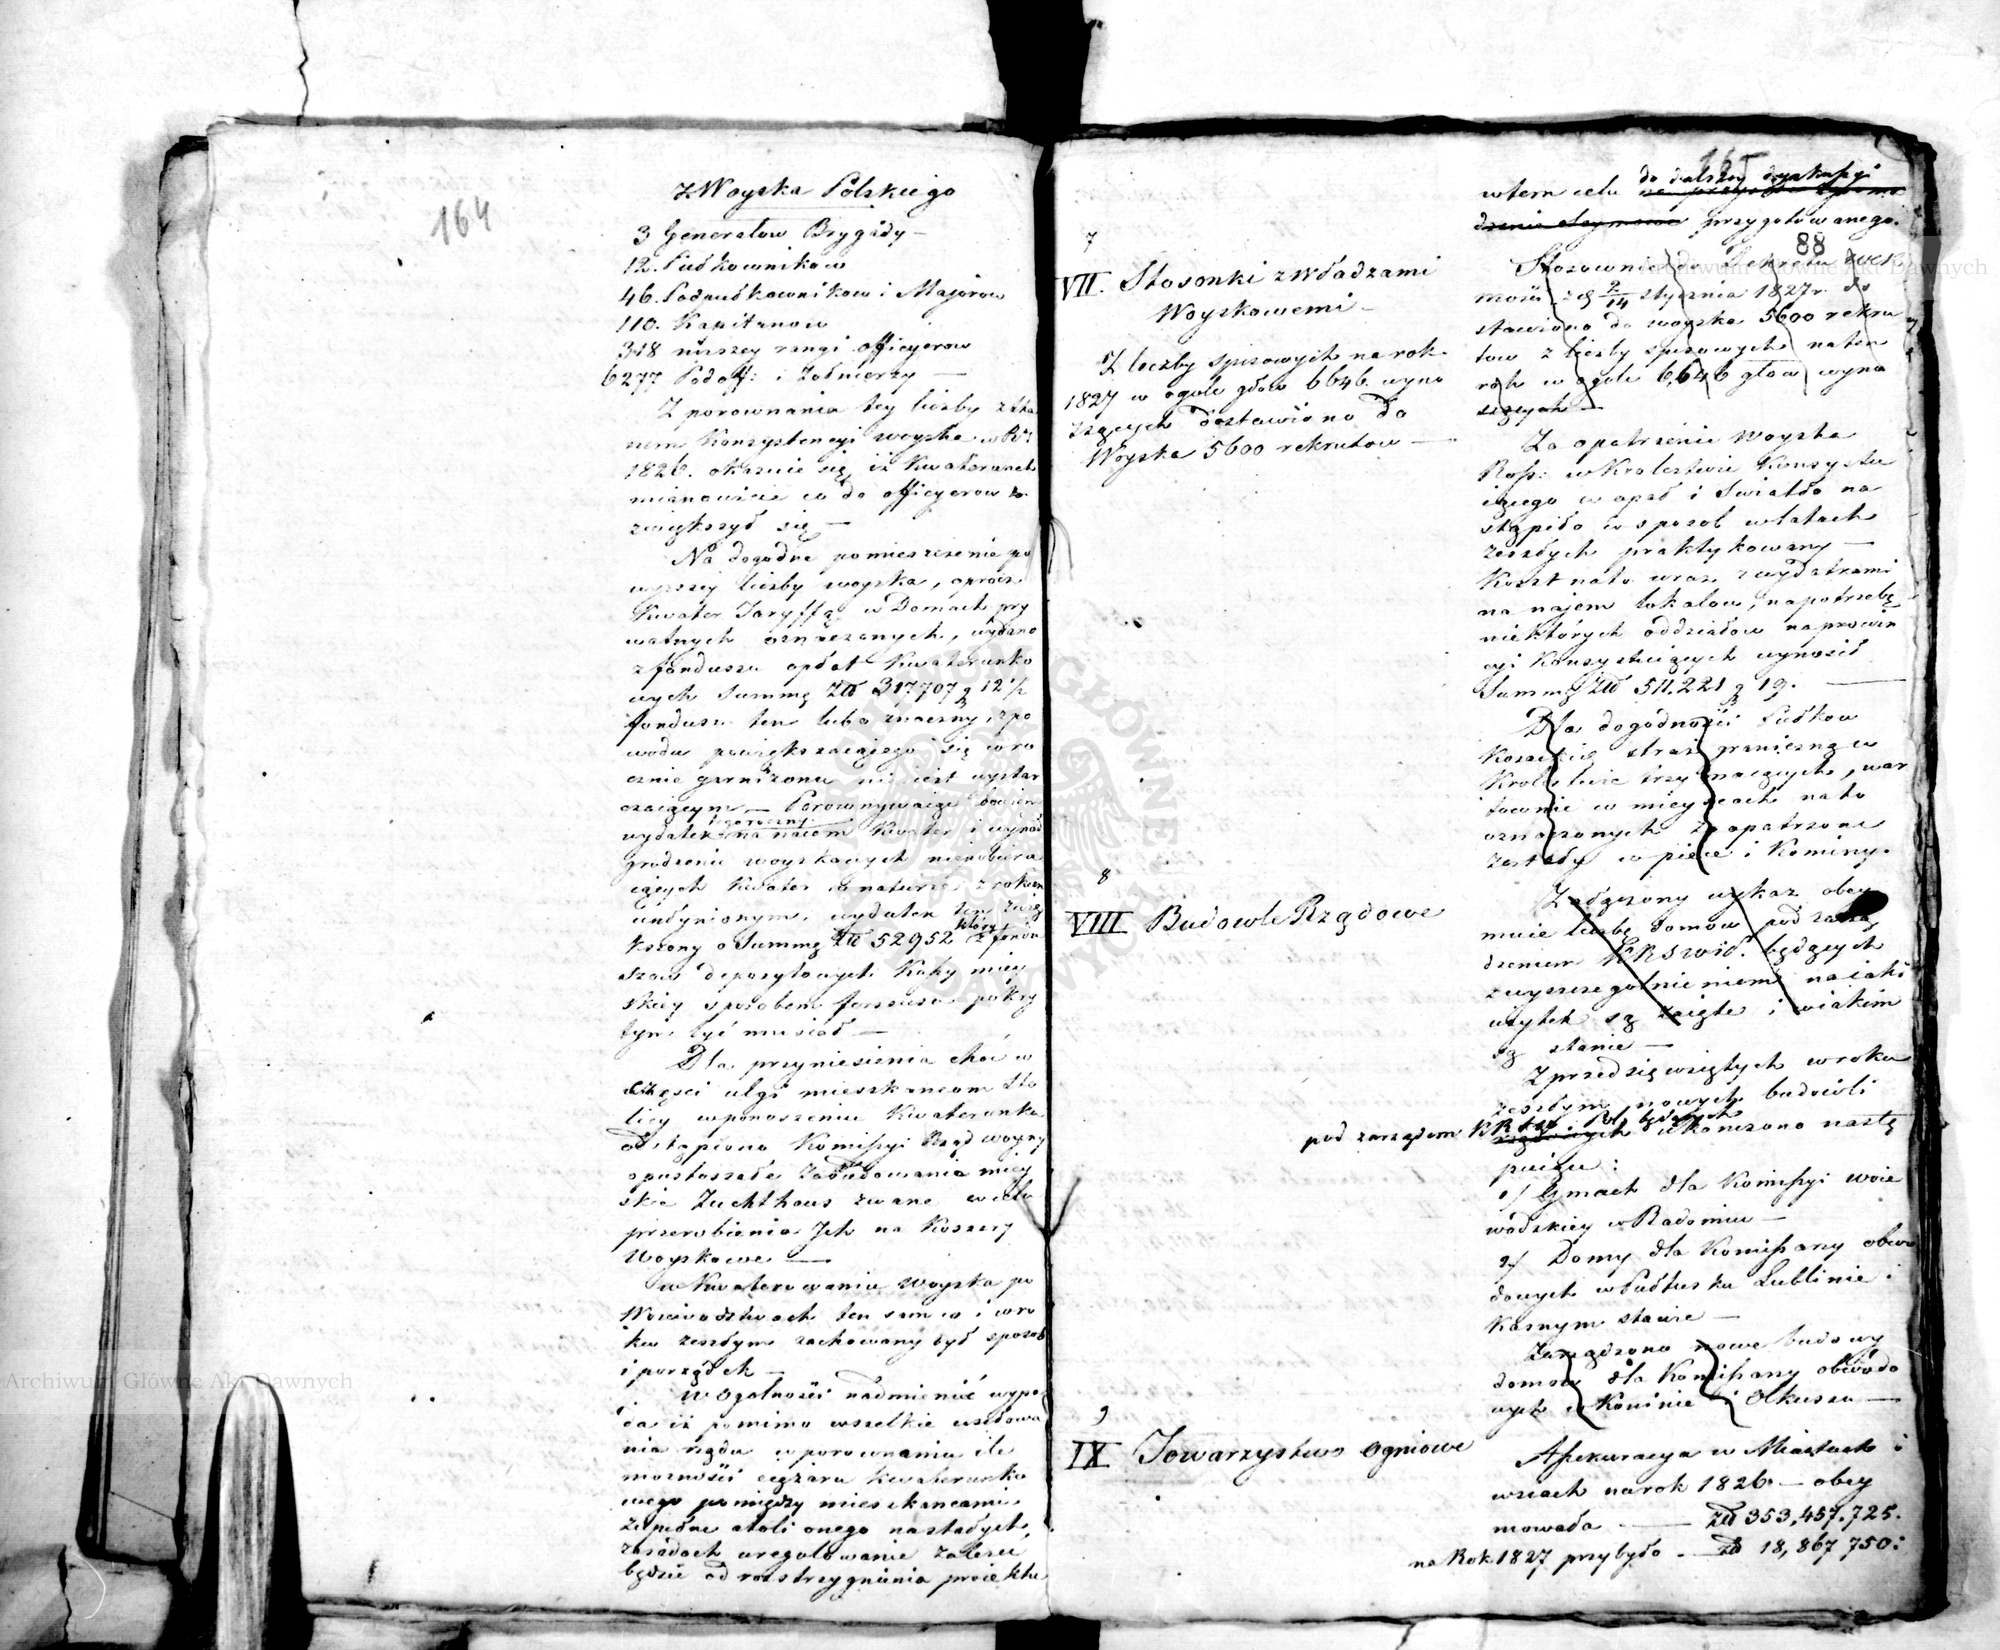 164
z Woyska Polskiego
3 Generałow Brygády —
12. Pułkownikow
46. Podpułkownikow i Majorow
110. Kapitanow
318 niższey rangi officyerow
6277 Podoff: i Żołnierzy —
Z porownania tey liczby z Sta
nem Konsystencyi woyska w R:
1826. okazuie się, iż Kwaterunek
mianowicie co do officyerow
zwiększył się —
Na dogodne pomieszczenie po
wyższey liczby woyska, oprócz
Kwater Taryffą w Domach pry
watnych oznaczonych, wydano
z funduszu opłat Kwaterunko
wych Summę Złł 317,707 g 12½
fundusz ten lubo znaczny, z po
wodu powiększaiącego się co ro
cznie garnizonu nie iest wystar
czaiącym — Porownywaiąc bowiem
wydatek tegoroczny na naiem Kwater i wynad
grodzenie woyskowych niepobiera
iących Kwater w naturze z rokiem
wydatek ten zwię
kszony o Summę Złł 52952 który z fundu
szow depozytowych Kassy miey
skiey sposobem forszusu pokry
tym być musiał —
Dla przyniesienia choć w
części ulgi mieszkancom Sto
licy w ponoszeniu Kwaterunku
odstąpiono Kommissyi Rząd woyny
opustoszałe Zabudowania miey
skie Zuchthaus zwane w celu
przerobienia Ich na Koszary
Woyskowe —
w Kwaterowaniu woyska po
Woiewodztwach ten sam co i w ro
ku zeszłym zachowany był sposob
i porządek —
W ogólności nadmienić wypa
da iż pomimo wszelkie usiłowa
nia rządu w porownaniu ile
możności ciężaru Kwaterunko
wego pomiędzy mieszkancami
zupełne atoli onego na stałych
zasadach uregulowanie zależeć
będzie od rozstrzygnienia proiektu
165
w tem celu do dalszey dyskussyi
przygotowanego.
88
7
VII. Stosonki z Władzami
Woyskowemi —
Z liczby spisowych na rok
1827 w ogóle głów 6646. wyno
szących dostawiono do
Woyska 5600 rekrutow —
Stosownie do Dekretu
z d. 2/14 stycznia 1827 r. do
stawiono do woyska 5600 rekru
tow z liczby spisowych na ten
rok w ogóle 6,646 głow wyno
szących —
Za opatrzenie Woyska
Ross: w Krolestwie Konsystu
iącego w opał i Swiatło na
stąpiło w sposob w latach
zeszłych praktykowany —
Koszt na to wraz z wydatkami
na najem lokalow, na potrzebę
niektórych oddziałow na prowin
cyi Konsystuiących wynosił
Summę Złł 511.221 g 19. —
Dla dogodności Pułkow
Kozackich straż graniczną w
Krolestwie trzymaiących, war
townie w mieyscach na to
oznaczonych zaopatrzone
zostały w piece i Kominy.
8
VIII Budowle Rządowe
Załączony wykaz obey
muie liczbę domow pod zarzą
dzeniem będących
z wyszczegolnieniem na iaki
użytek są zaięte i w iakim
są stanie —
Z przedsięwziętych w roku
zeszłym nowych budowli
pod zarządem będących ukonczono nastę
puiące:
1/ Gmach dla Kommissyi woie
wodzkiey w Radomiu —
2/ Domy dla Kommissarzy obwo
dowych w Pułtusku Lublinie i
Krasnym stawie —
Zarządzono nowe budowy
domow dla Kommissarzy obwodo
wych w Koninie i Olkuszu —
9
IX Towarzystwo Ogniowe
Assekuracya w Miastach i
wsiach na rok 1826 — obey
mowała — Złł 353,457,725.
na Rok 1827 przybyło — Złł 18,867,750:
Archiwum Główne Akt Dawnych
Archiwum Główne Akt Dawnych
Archiwum Główne Akt Dawnych